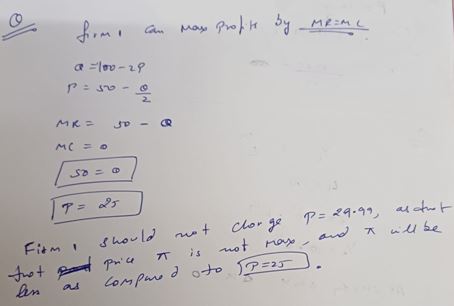 Q
firm 1 can max profit by MR=MC
Q = 100 - 2P
P = 50 - Q/2
MR = 50 - Q
MC = 0
50 = Q
P = 25
Firm 1 should not charge P = 29.99, as at
that price π is not max, and π will be
less as compared to P=25.